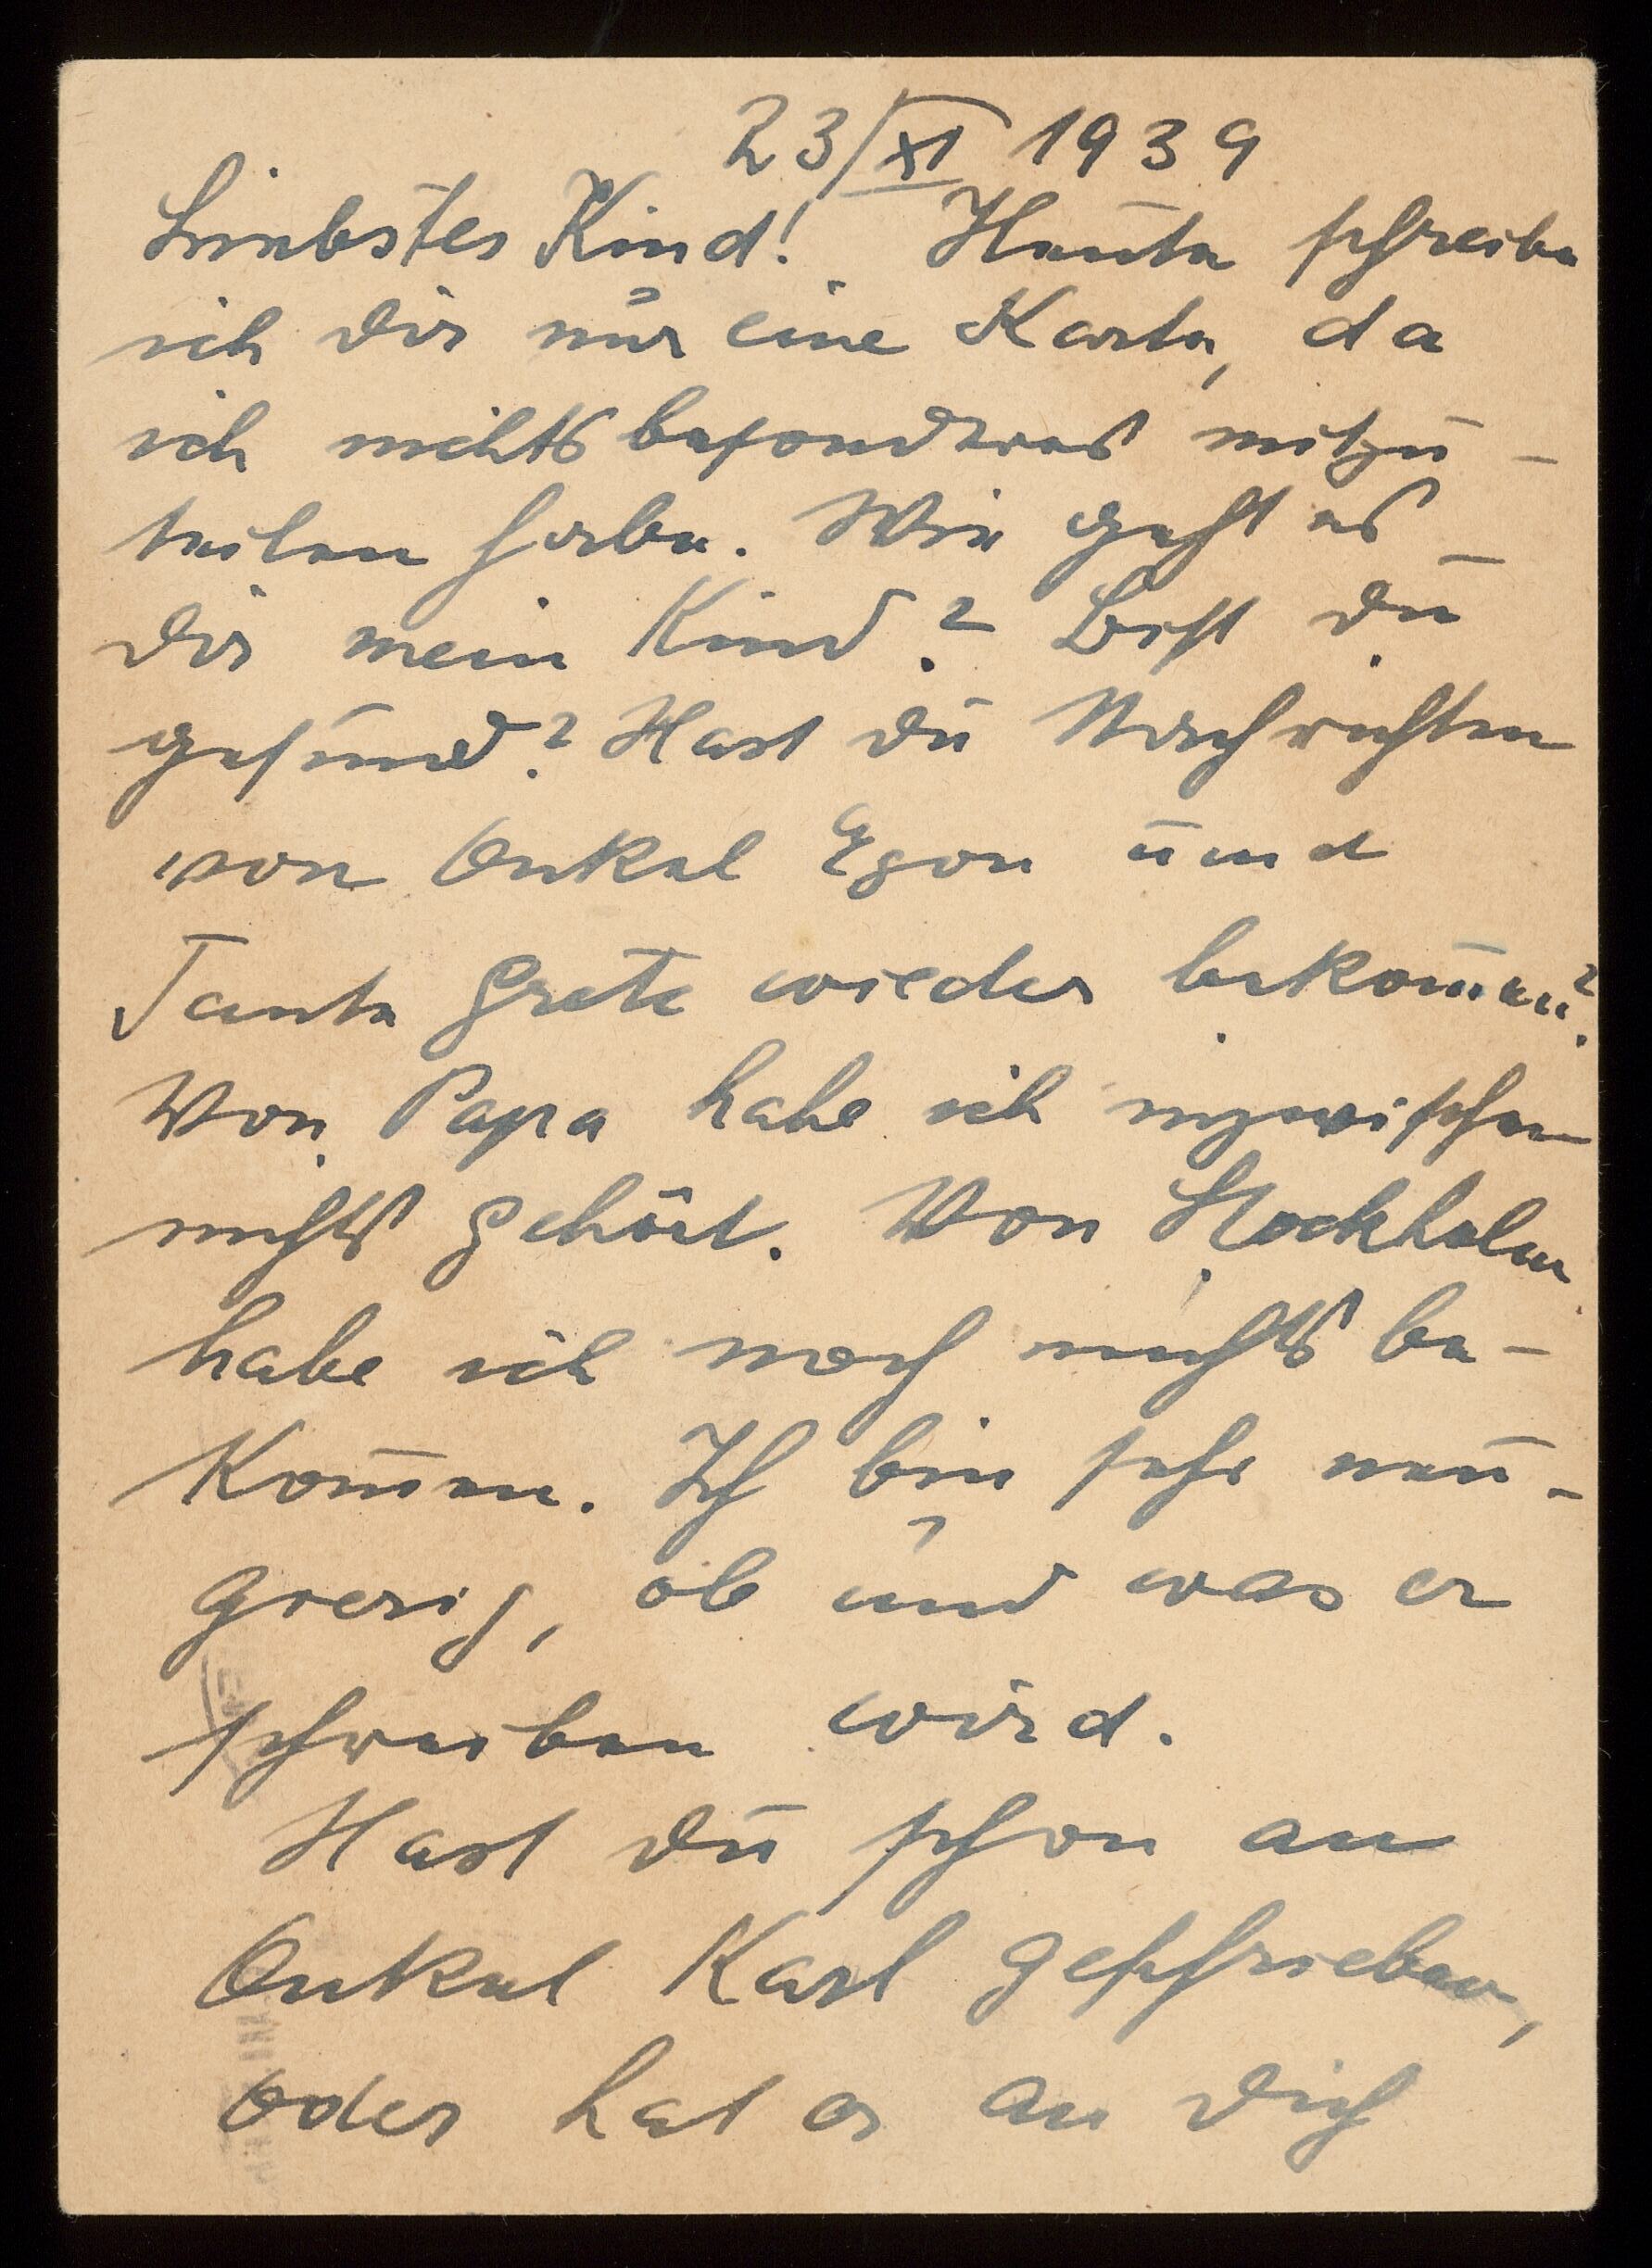 23/XI 1939
Liebstes Kind! Heute schreibe
ich Dir nur eine Karte, da
ich nichts besonderes mitzu-
teilen habe. Wie geht es
Dir mein Kind? Bist Du
gesund? Hast Du Nachrichten
von Onkel Egon und
Tante Grete wieder bekom̄en?
Von Papa habe ich inzwischen
nichts gehört. Von Stockholm
habe ich noch nichts be-
kom̄en. Ich bin sehr neu-
gierig, ob und was er
schreiben wird.
Hast Du schon an
Onkel Karl geschrieben,
oder hat er an Dich